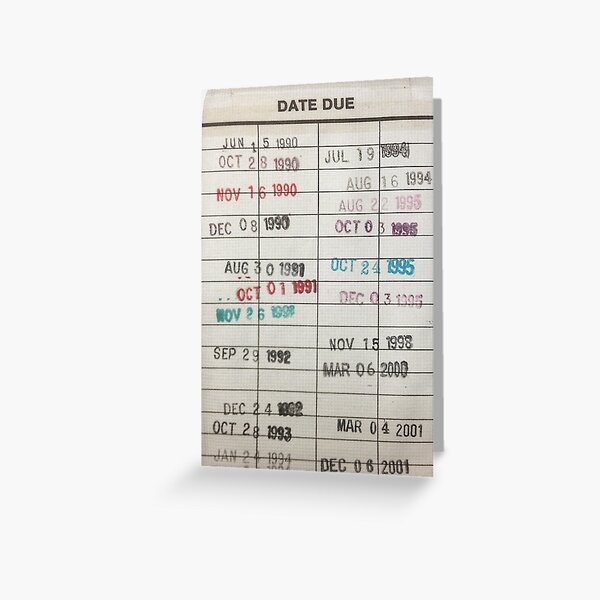 DATE DUE
JUN 15 1990
OCT 28 1990
NOV 16 1990
DEC 08 1990
AUG 30 1991
OCT 01 1991
NOV 26
SEP 29 1992
DEC 24 1992
OCT 28 1993
JAN 24 1994
JUL 19 1994
AUG 16 1994
AUG 22 1995
OCT 03 1995
OCT 24 1995
DEC 03 1995
NOV 15 1998
MAR 06 2000
MAR 04 2001
DEC 06 2001